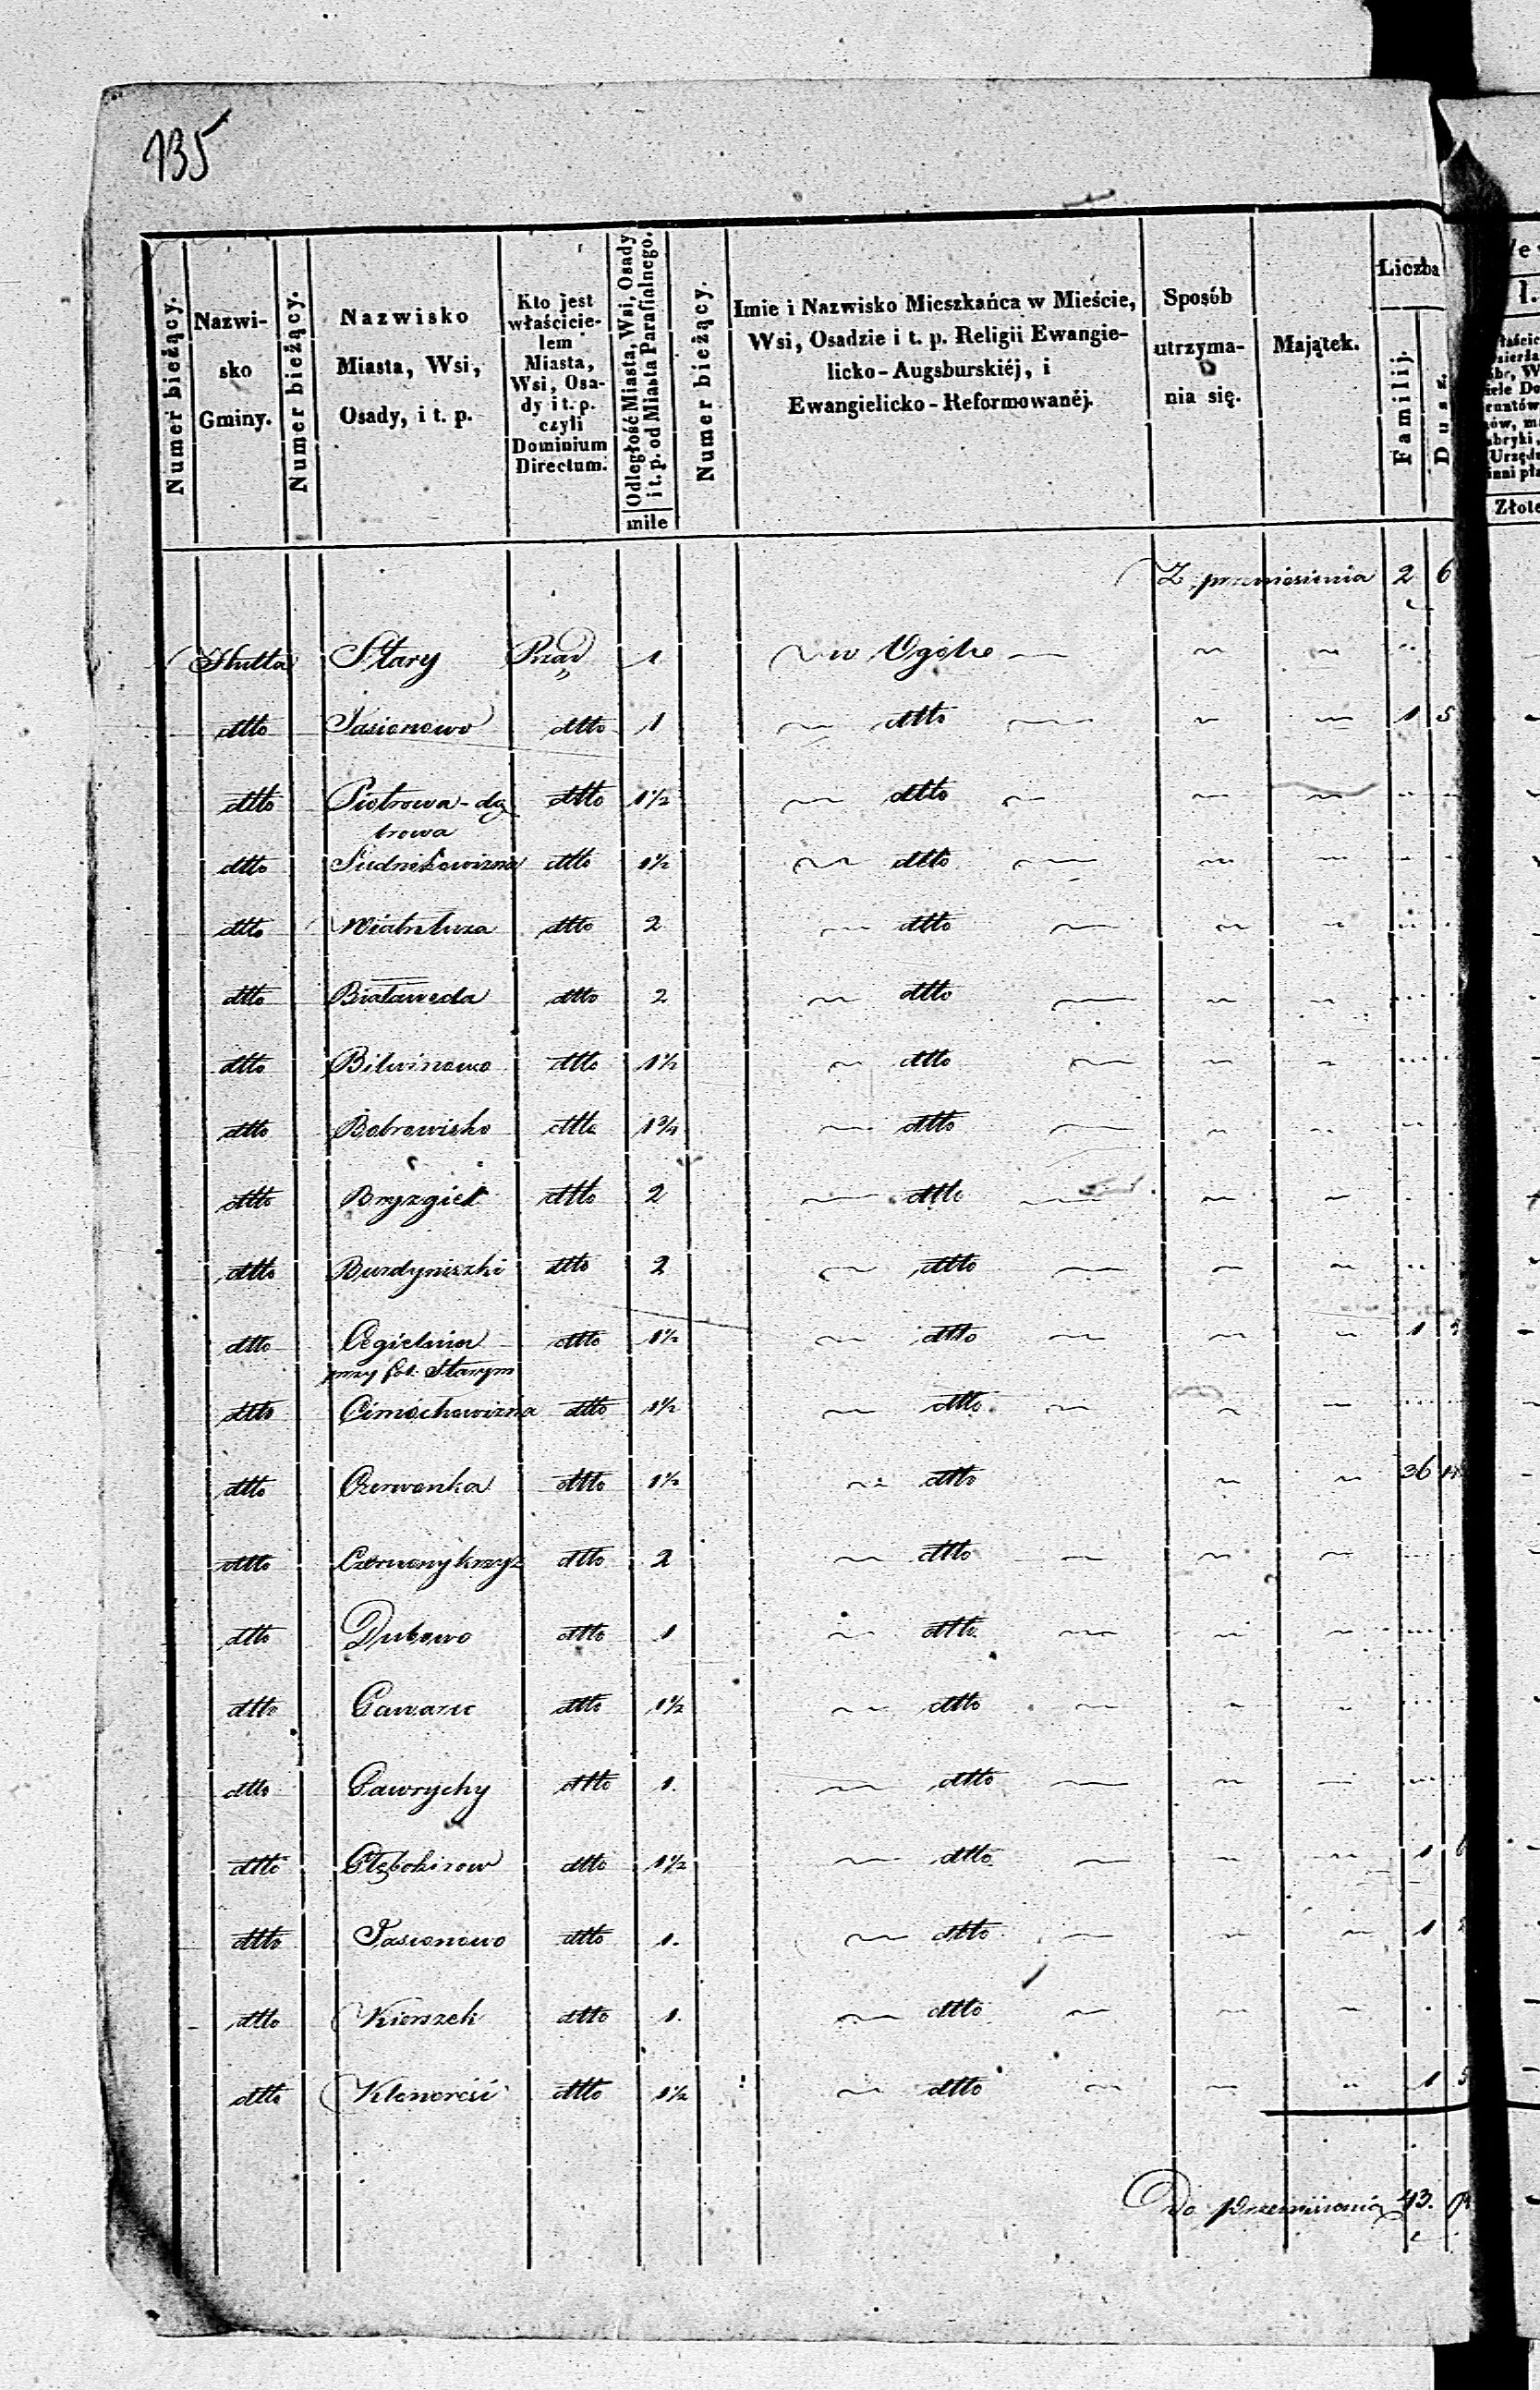 135
Numer bieżący.
Nazwi-
sko
Gminy.
Numer bieżący.
Nazwisko
Miasta, Wsi,
Osady, i t. p.
Kto jest
właścicie-
lem
Miasta,
Wsi, Osa-
dy i t. p.
czyli
Dominium
Directum.
Odległość Miasta, Wsi, Osady
i t. p. od Miasta Parafialnego.
mile
Numer bieżący.
Imie i Nazwisko Mieszkańca w Mieście,
Wsi, Osadzie i t. p. Religii Ewangie-
licko-Augsburskiéj, i
Ewangielicko-Reformowanéj.
Sposób
utrzyma-
nia się.
Majątek.
Liczba
Familij.
Dusz.
Z przeniesienia 2 6
Hutta Stary Rząd 1 w Ogóle
dtto Jasionowo dtto 1 dtto 1 5
dtto Piotrowa-dą dtto 1½ dtto
browa
dtto Sudnikowizna dtto 1½ dtto
dtto Wiatrołuza dtto 2 dtto
dtto Białaweda dtto 2 dtto
dtto Bilwinowo dtto 1½ dtto
dtto Bobrowisko dtto 1¾ dtto
dtto Bryzgiel dtto 2 dtto
dtto Burdyniszki dtto 2 dtto
dtto Cegielnia dtto 1½ dtto 1
przy fol. Starym
dtto Cimochowizna dtto 1½ dtto
dtto Czerwonka dtto 1½ dtto 36
dtto Czerwonykrzyż dtto 2 dtto
dtto Dubowo dtto 1 dtto
dtto Gawarze dtto 1½ dtto
dtto Gawrychy dtto 1. dtto
dtto Głębokirow dtto 1½ dtto 1 6
dtto Jasionowo dtto 1. dtto 1
dtto Kierszek dtto 1. dtto
dtto Klonoreść dtto 1½ dtto 1
Do przeniesienia 43.